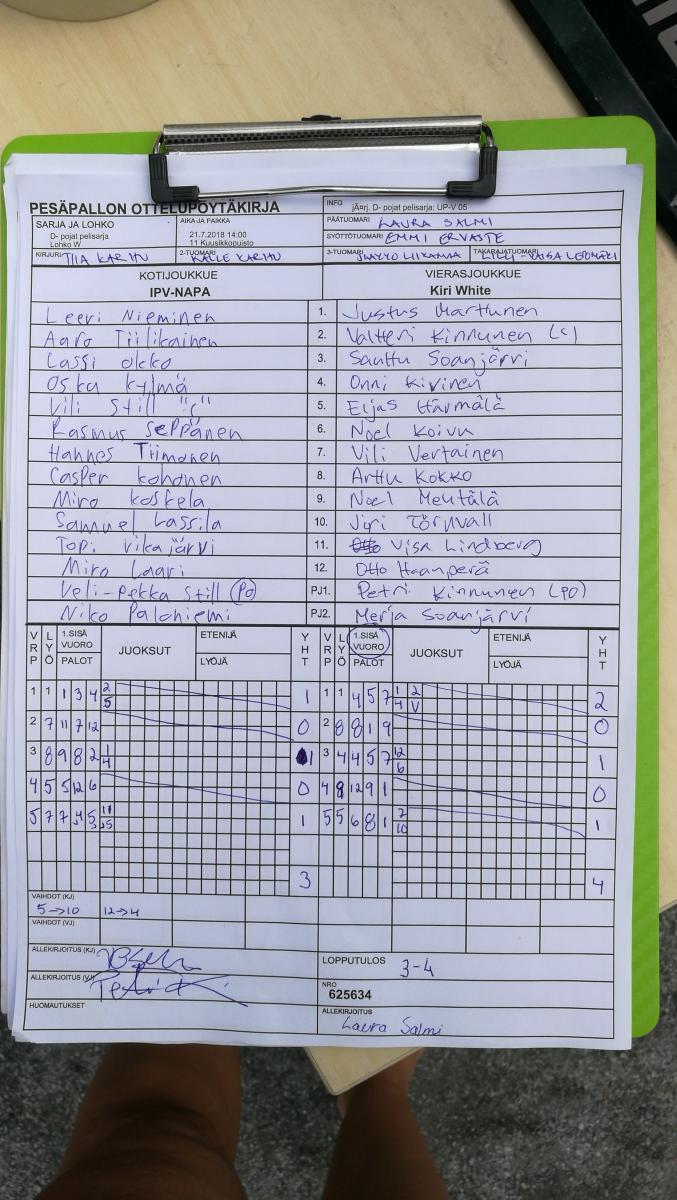 PESÄPALLON OTTELUPÖYTÄKIRJA
INFO jÃ¤rj. D- pojat pelisarja: UP-V 05
SARJA JA LOHKO
D- pojat pelisarja
Lohko W
AIKA JA PAIKKA
21.7.2018 14:00
11 Kuusikkopuisto
PÄÄTUOMARI LAURA SALMI
SYÖTTÖTUOMARI EMMI ERVASTE
KIRJURI TIIA KARHU
2-TUOMARI KALLE KARHU
3-TUOMARI
TAKARAJATUOMARI
KOTIJOUKKUE VIERASJOUKKUE
IPV-NAPA Kiri White
Leevi Nieminen 1. Justus Marttunen
Aaro Tiilikainen 2. Valtteri Kinnunen (c)
Lassi Okko 3. Santtu Soanjärvi
Oska Kylmä 4. Onni Kivinen
Vili Still "c" 5. Eljas Härmälä
Rasmus Seppänen 6. Noel Koivu
Hannes Tiimonen 7. Vili Vertainen
Casper Kohonen 8. Arttu Kokko
Miro Koskela 9. Noel
Samuel Lassila 10. Jyri Törnvall
Topi Vikajärvi 11. Visa Lindberg
Miro Laari 12. Otto Haanperä
Veli-Pekka Still (PO) PJ1. Petri Kinnunen (PO)
Niko Palohiemi PJ2. Merja Soanjärvi
VRP LYÖ 1.SISÄ VUORO PALOT JUOKSUT ETENIJÄ LYÖJÄ YHT VRP LYÖ 1.SISÄ VUORO PALOT JUOKSUT ETENIJÄ LYÖJÄ YHT
1 1 1 3 4 2/5 1 1 1 4 5 7 1/4 2/V 2
2 7 11 7 12 0 2 8 8 1 9 0
3 8 9 8 2 1/4 1 3 4 4 5 7 12/6 1
4 5 5 12 6 0 4 8 12 9 1 0
5 7 7 5 11 1 5 5 6 8 1 2/10 1
3 4
VAIHDOT (KJ)
5→10 12→4
VAIHDOT (VJ)
ALLEKIRJOITUS (KJ)
LOPPUTULOS 3-4
ALLEKIRJOITUS (VJ)
NRO
625634
HUOMAUTUKSET
ALLEKIRJOITUS
Laura Salmi